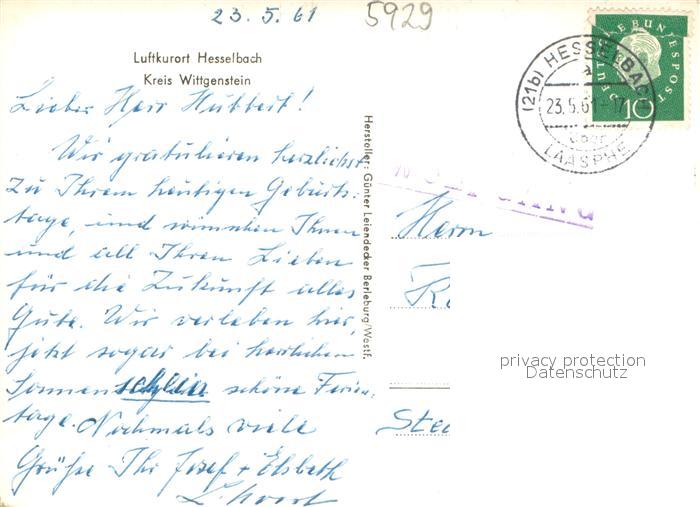 23. 5. 61
5929
Luftkurort Hesselbach
Kreis Wittgenstein
Lieber Herr Hubbert!
Wir gratulieren herzlichst
zu Ihrem heutigen Geburts-
tage, und wünschen Ihnen
und all Ihren Lieben
für die Zukunft alles
Gute. Wir verleben hier,
jetzt sogar bei herrlichem
Sonnenschein schöne Ferien-
tage. Nochmals viele
Grüße Ihr Josef + Elsbeth
Hersteller: Günter Leiendecker Berleburg/Westf.
DEUTSCHE BUNDESPOST
10
(21b) HESSELBACH
a
23.5.61-17
über
LAASPHE
Herrn
privacy protection
Datenschutz